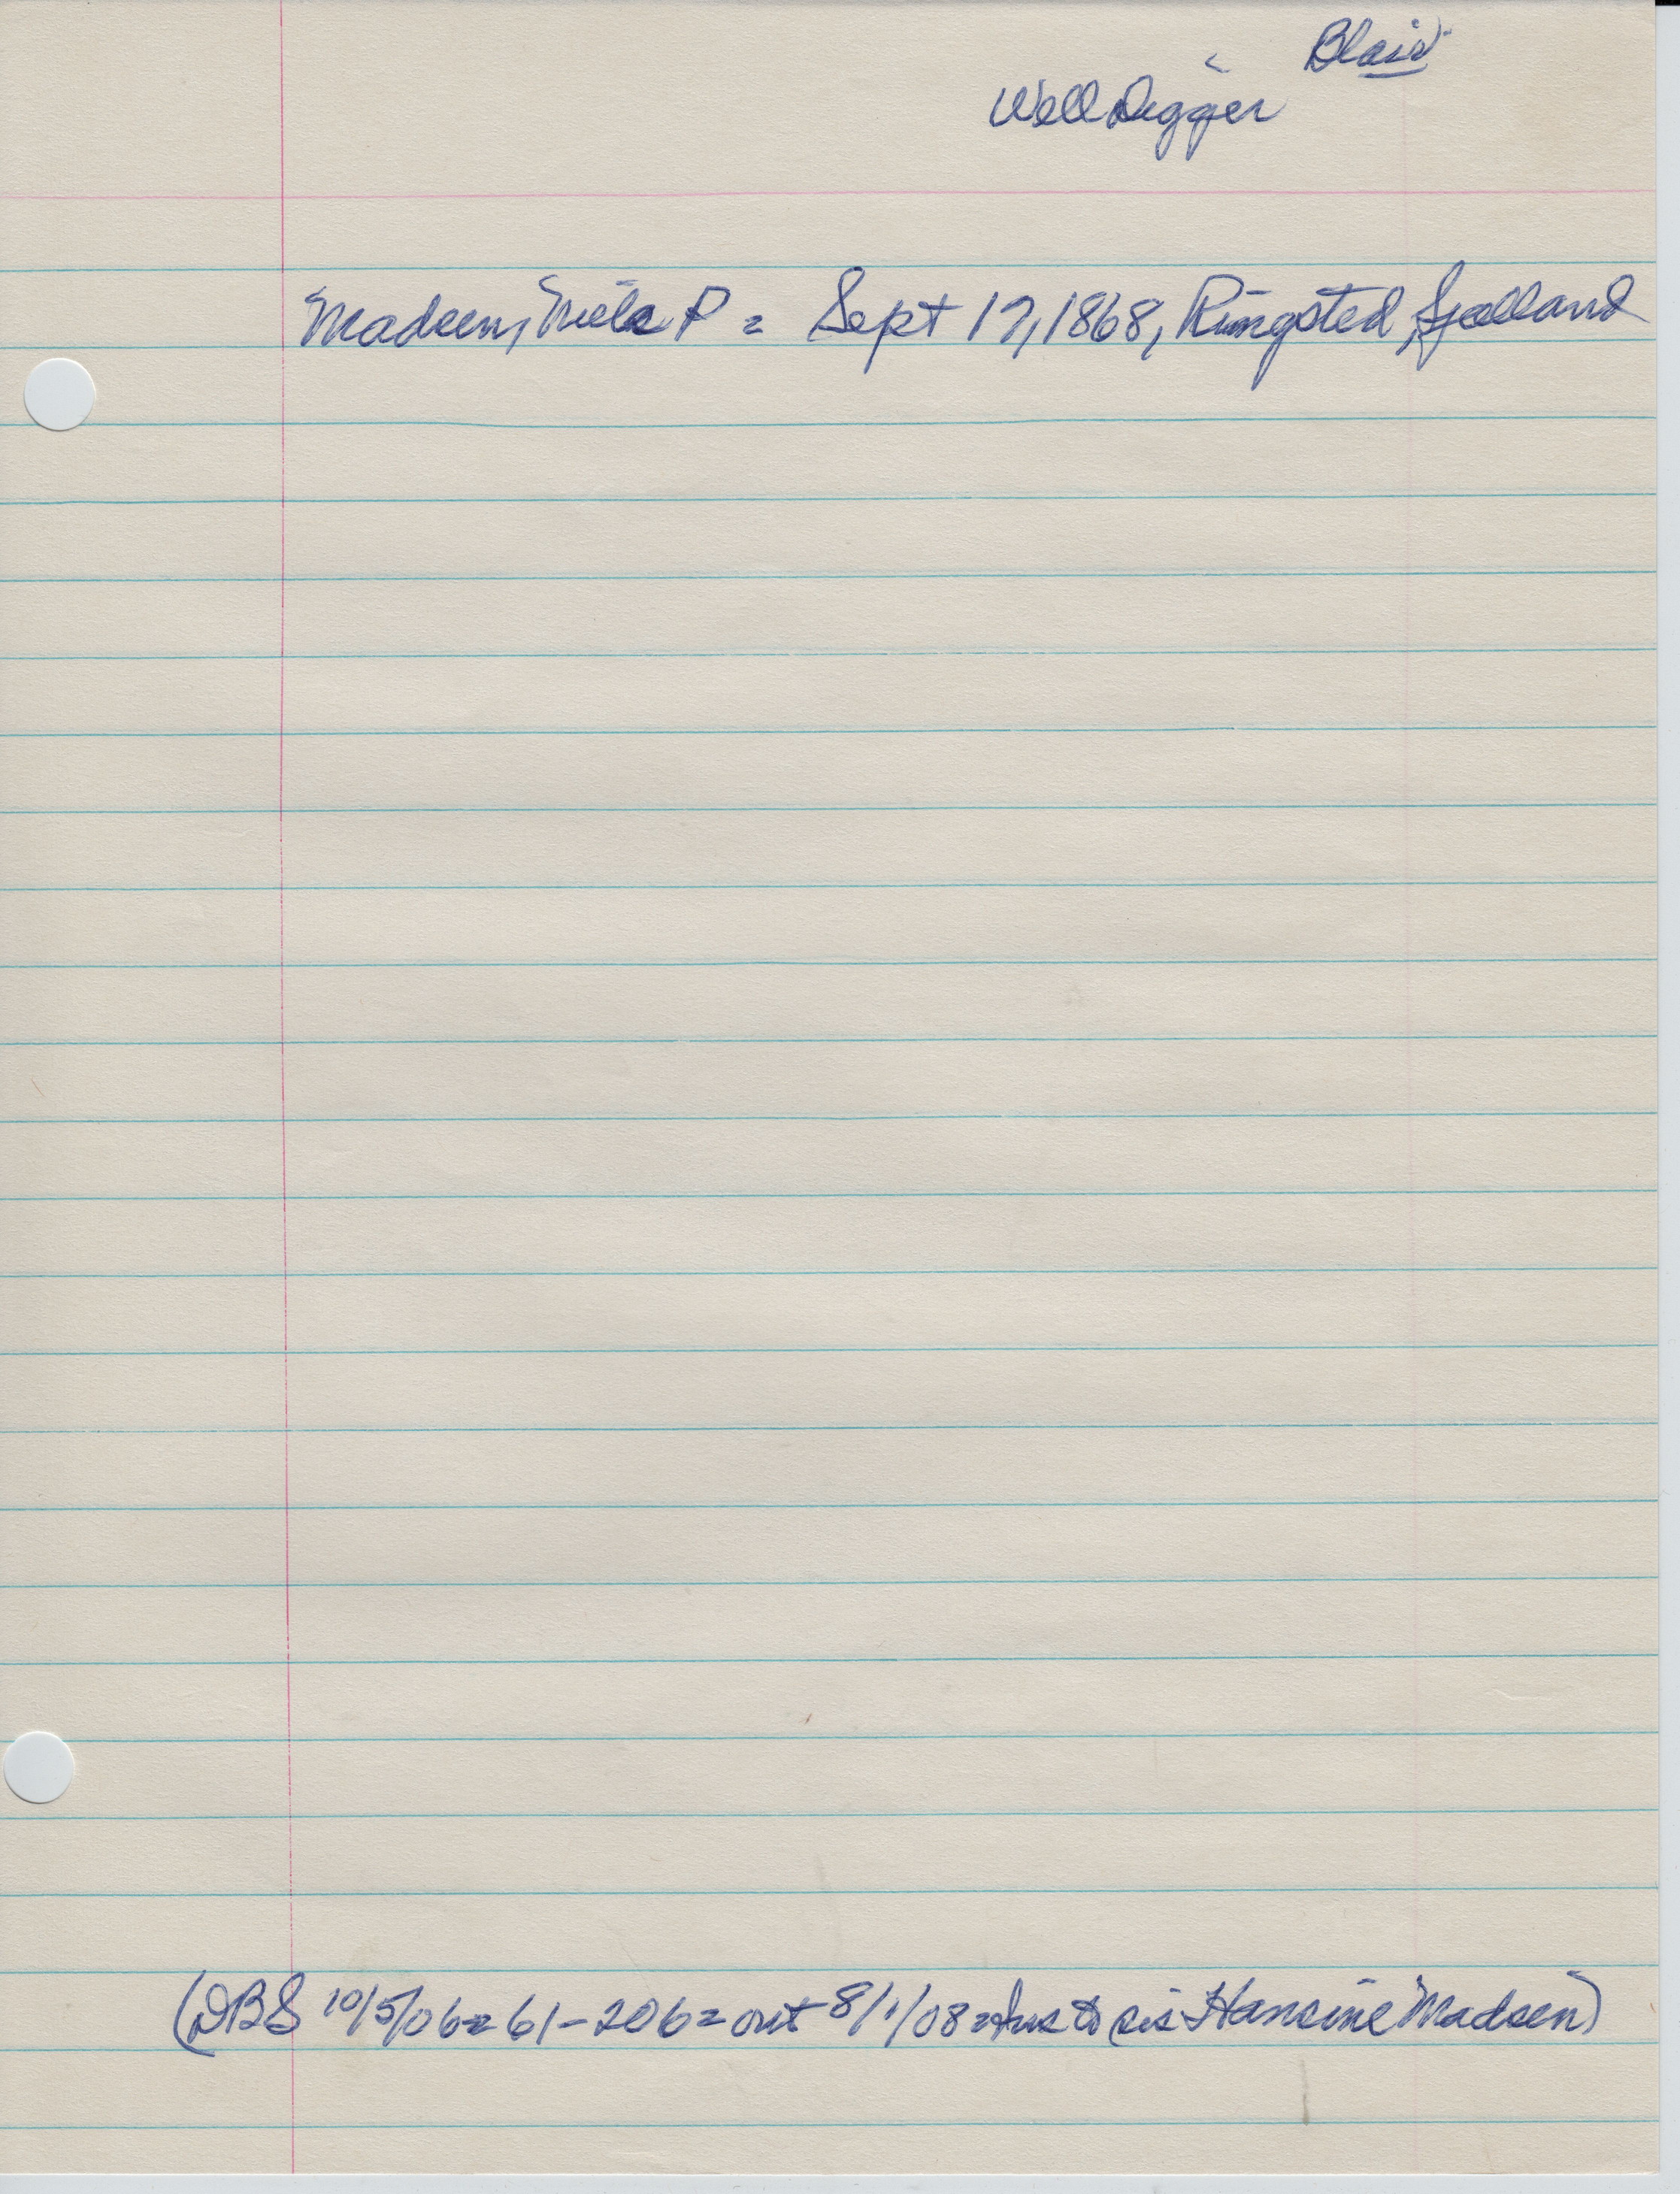 Blair
Well Digger
Madsen, Niels P = Sept 17, 1868, Ringsted, Sjælland
(DBS 10/5/06 = 61-206 = out 8/1/08 = Ins to sis Hansine Madsen)